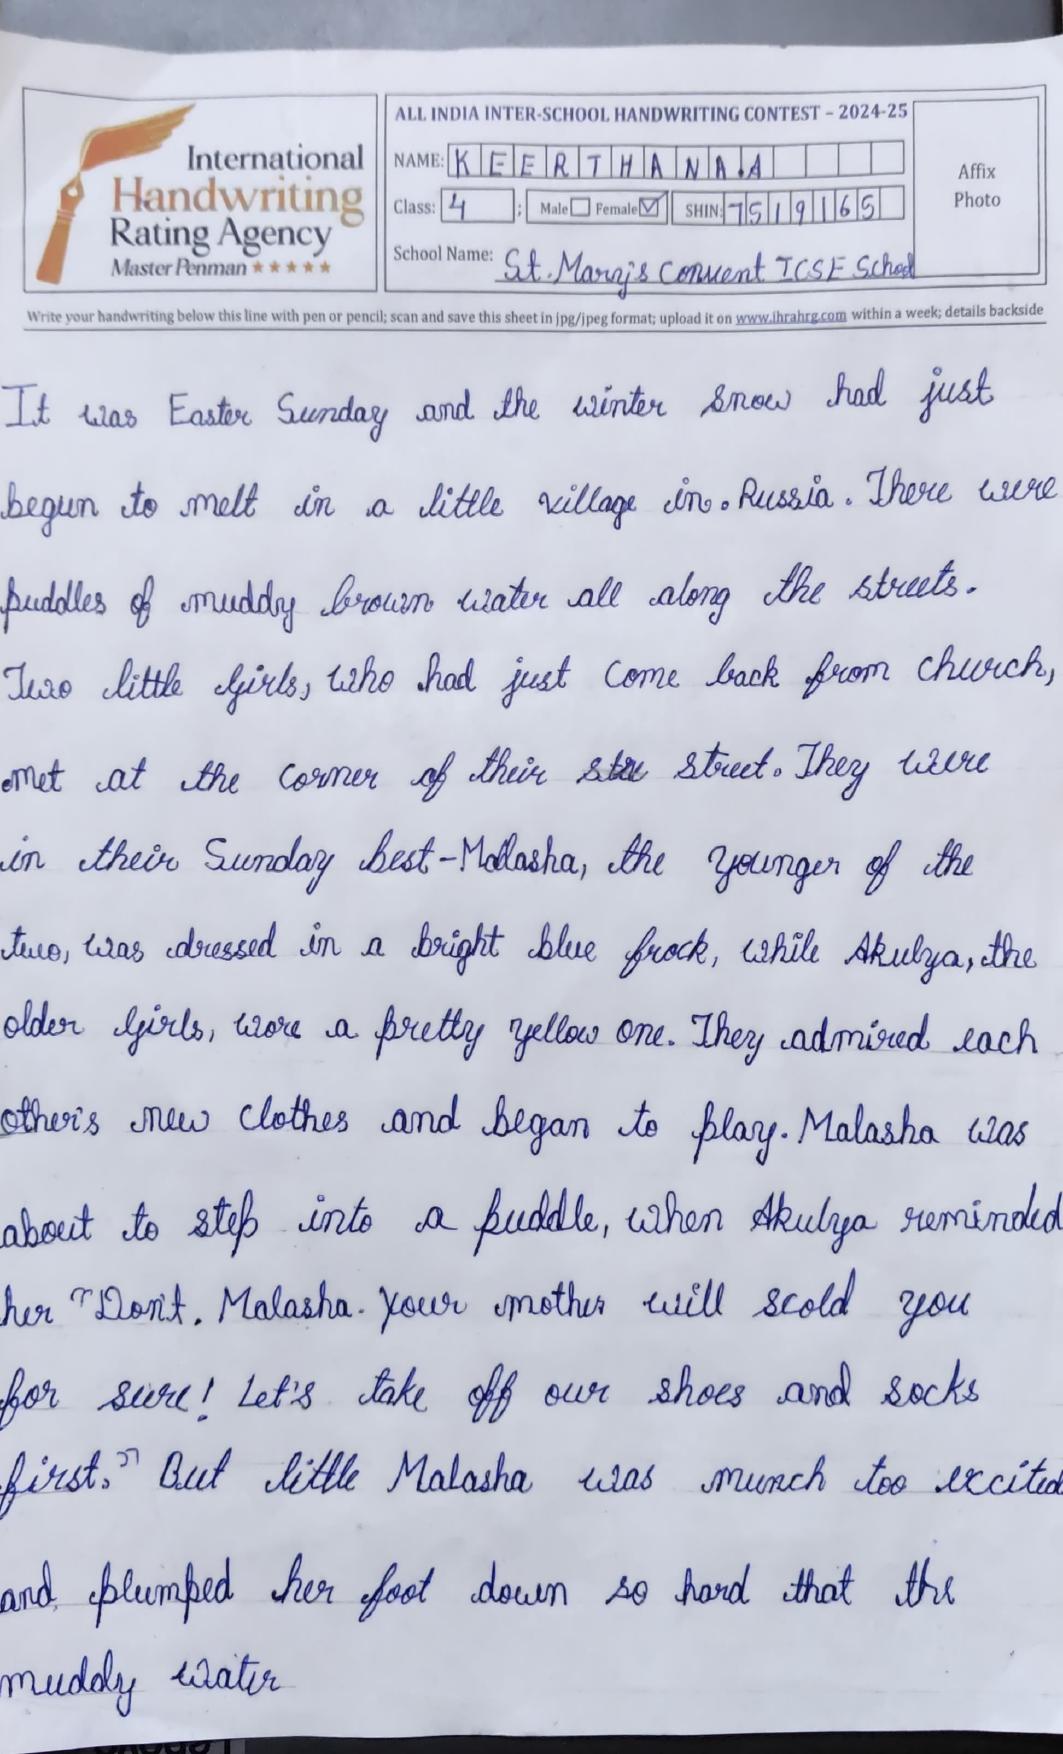 International
Handwriting
Rating Agency
Master Penman ★★★★★
ALL INDIA INTER-SCHOOL HANDWRITING CONTEST – 2024-25
NAME: KEERTHANA.A
Class: 4 ; Male Female ✓ SHIN: 7519165
School Name: St. Mary's Convent ICSE School
Affix
Photo
Write your handwriting below this line with pen or pencil; scan and save this sheet in jpg/jpeg format; upload it on www.ihrahrg.com within a week; details backside
It was Easter Sunday and the winter snow had just
begun to melt in a little village in. Russia. There were
puddles of muddy brown water all along the streets.
Two little Girls, who had just come back from church,
met at the corner of their stre street. They were
in their Sunday best-Malasha, the younger of the
two, was dressed in a bright blue frock, while Akulya, the
older Girls, wore a pretty yellow one. They admired each
other's new clothes and began to play. Malasha was
about to step into a puddle, when Akulya reminded
her "Don't. Malasha. Your mother will scold you
for sure! Let's take off our shoes and socks
first." But little Malasha was munch too excited
and plumped her foot down so hard that the
muddy water